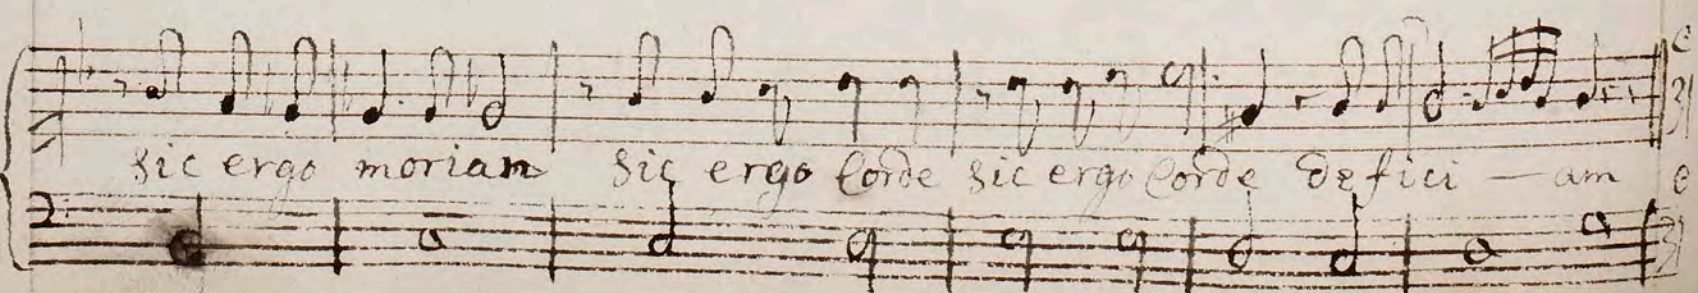 sic ergo moriam sic ergo corde sic ergo corde defici — am